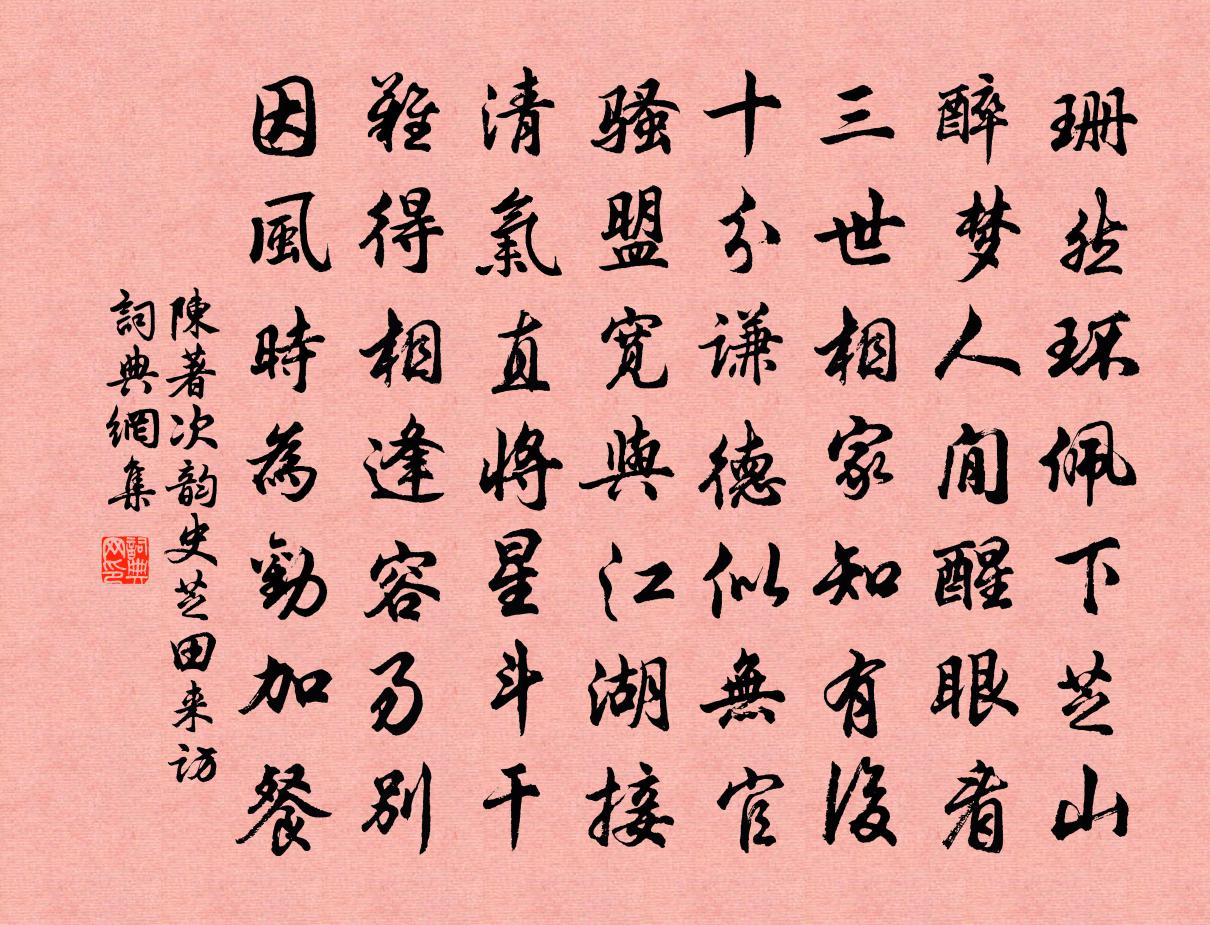 珊然环佩下芝山
醉梦人间醒眼看
三世相家知有後
十分谦德似無官
骚盟宽與江湖接
清氣直將星斗干
難得相逢容易別
因風時為勸加餐
陳著次韵史芝田来访
詞典網集
詞典网印